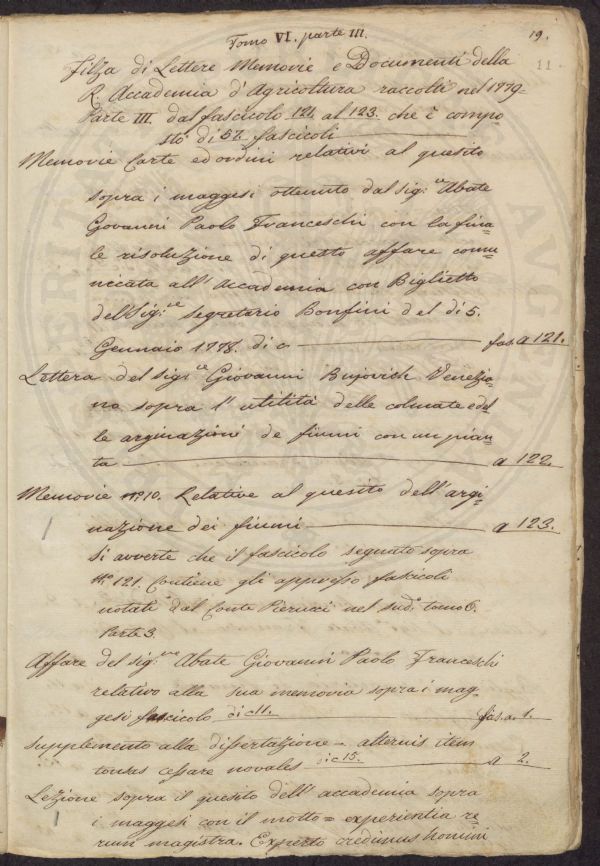 Tomo VI. parte III.
19.
11
Filza di Lettere Memorie e Documenti della
R. Accademia d'Agricoltura raccolti nel 1779
Parte III. dal fascicolo 121. al 123. che è compo=
sto di 57. fascicoli
Memorie Carte ed ordini relativi al quesito
sopra i maggesi ottenuto dal sig:re Abate
Giovanni Paolo Franceschi con la fina=
le risoluzione di questo affare comu=
nicata all'Accademia con Biglietto
del Sig:re segretario Bonfini del di 5.
Gennaio 1778. di c fas. a 121.
Lettera del sigr:e Giovanni Bujovich Venezia=
no sopra l'utilità delle colmate e del
le arginazioni de fiumi con un pian=
ta a 122.
Memorie n.o 10. Relative al quesito dell'argi=
nazione dei fiumi a 123.
Si avverte che il fascicolo segnato sopra
n.o 121. Contiene gli appresso fascicoli
notati dal Conte Pierucci nel sud.o tomo 6.
Parte 3.
Affare del sig:re Abate Giovanni Paolo Franceschi
relativo alla sua memoria sopra i mag=
gesi fascicolo di c 11. fas. a. 1.
Supplemento alla dissertazione = alternis item
tonsas cessare novales di c 15. a 2.
Lezione sopra il quesito dell'accademia sopra
i maggesi con il motto = experientia re
rum magistra. Experto credimus homini